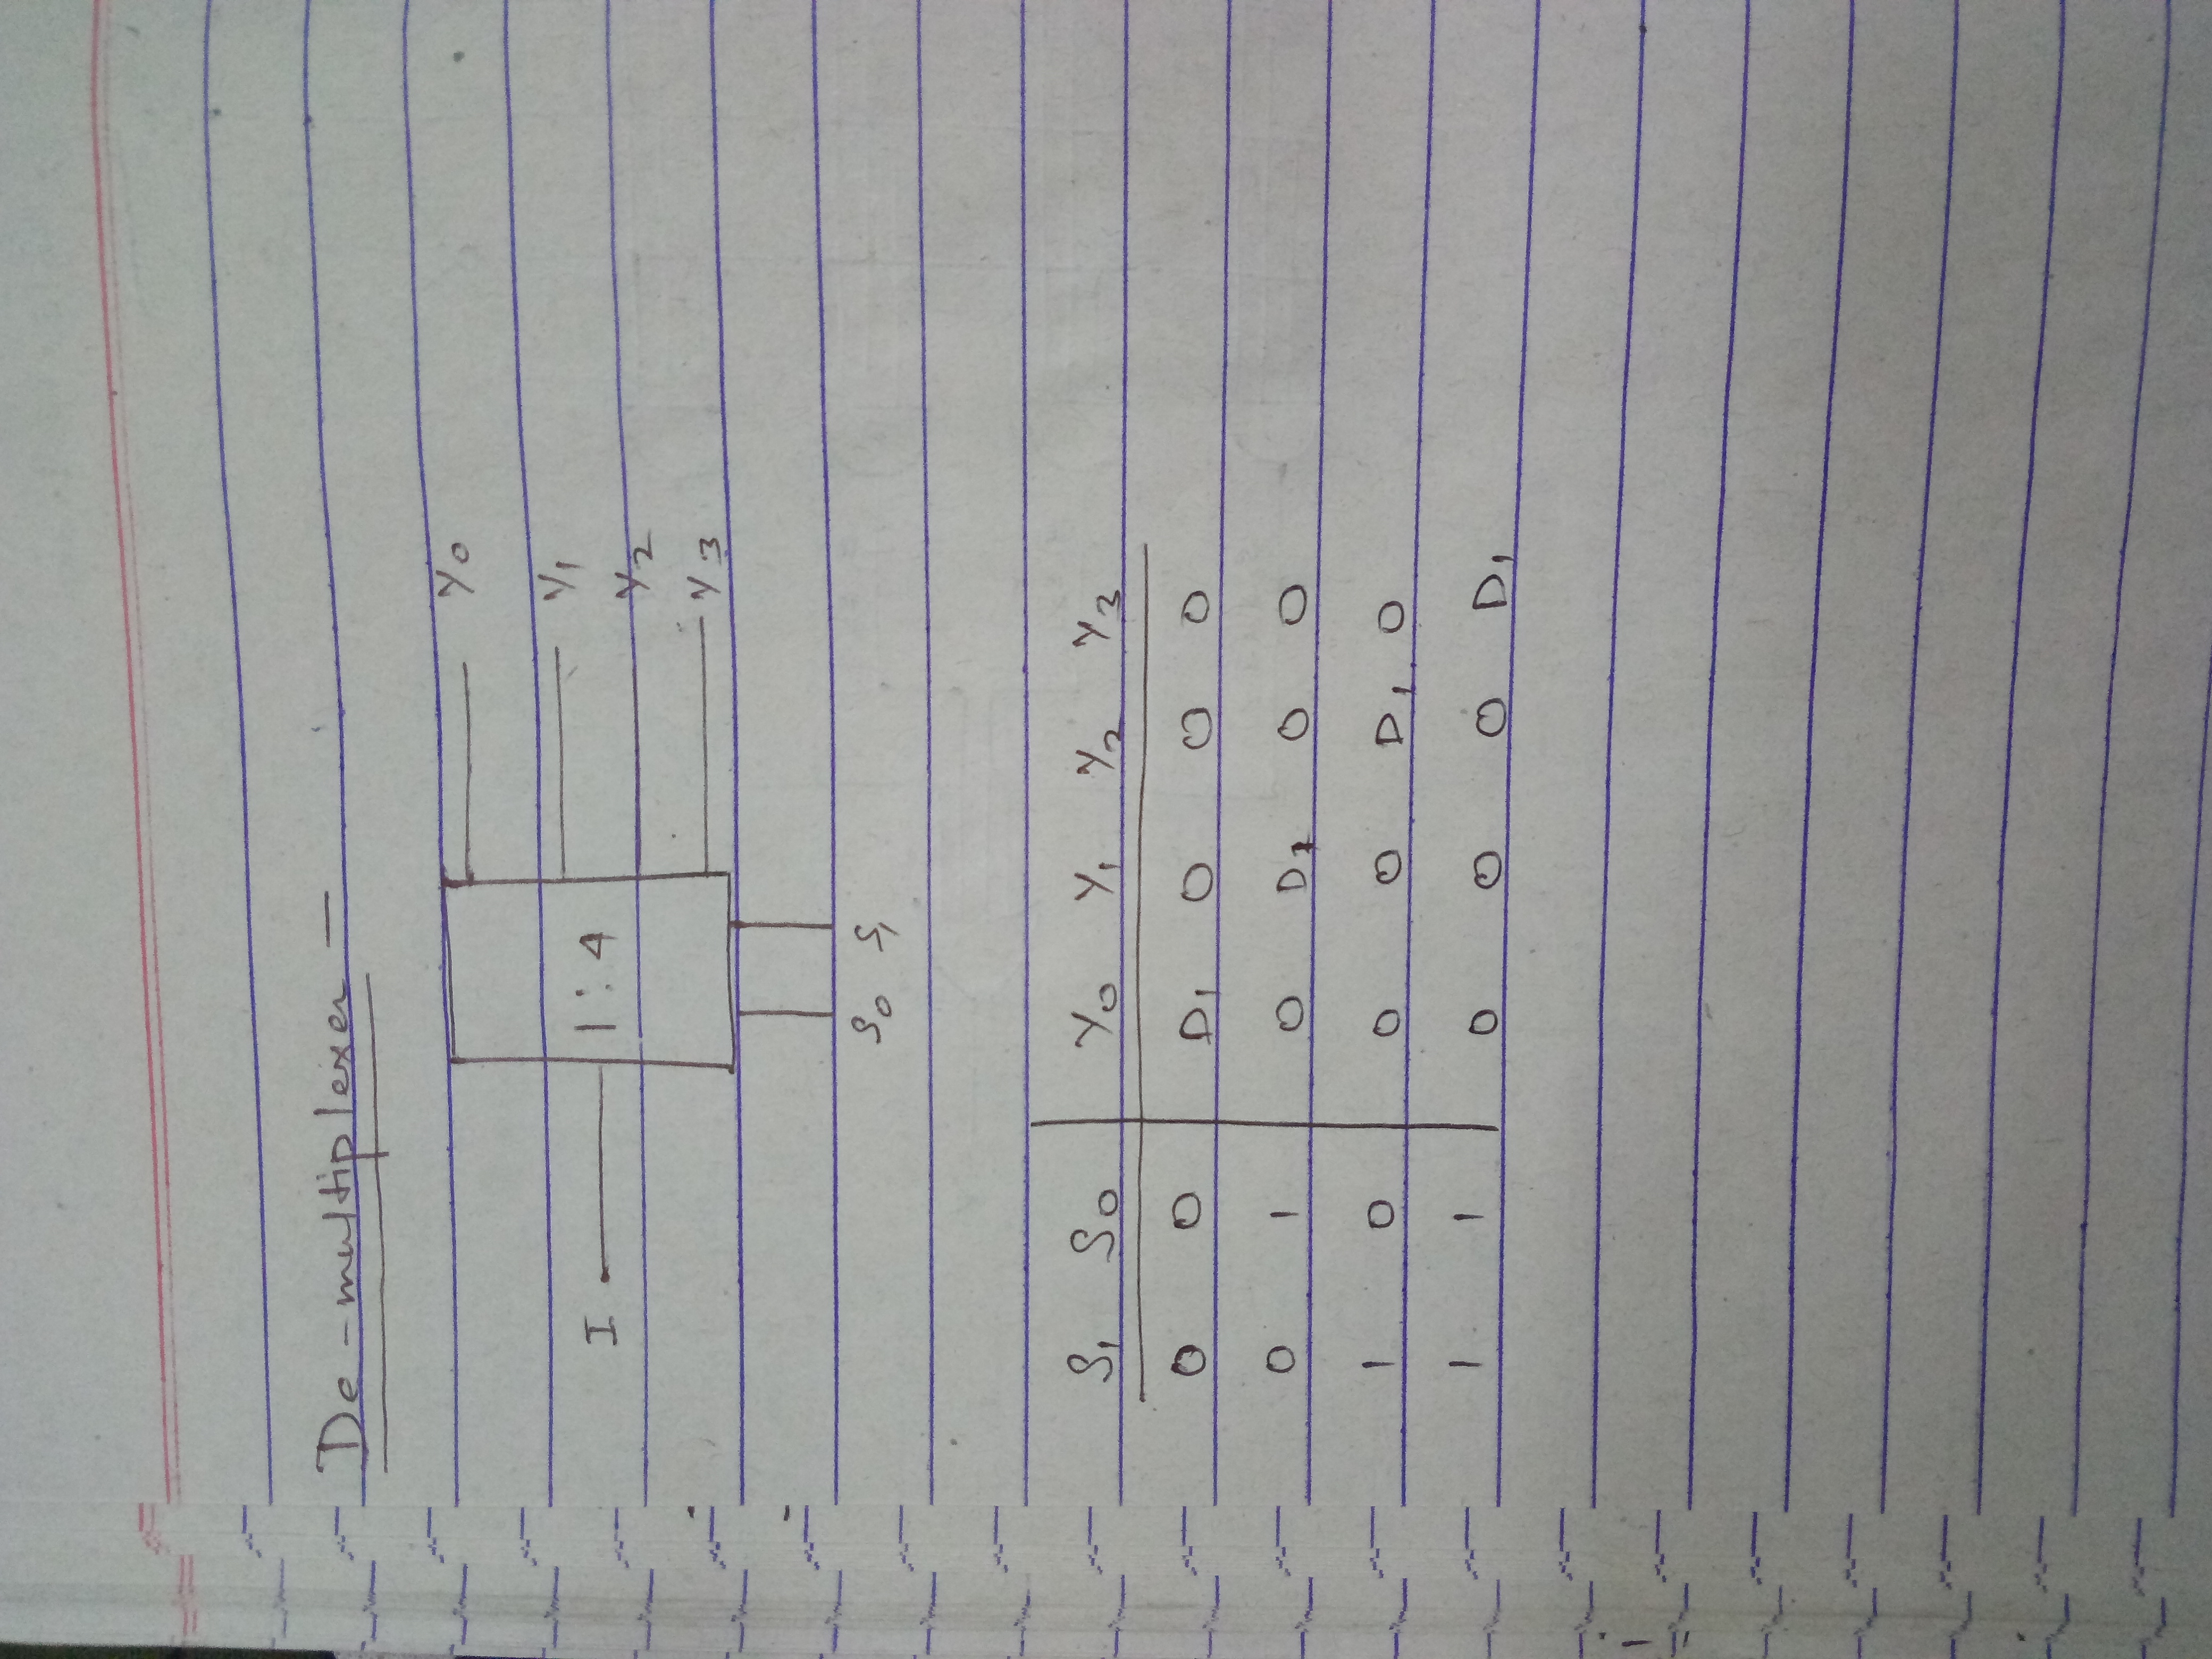 De-multiplexer —
Y0
Y1
I 1:4
Y2
Y3
S0 S1
S1 S0 Y0 Y1 Y2 Y3
0 0 D1 0 0 0
0 1 0 D1 0 0
1 0 0 0 D1 0
1 1 0 0 0 D1